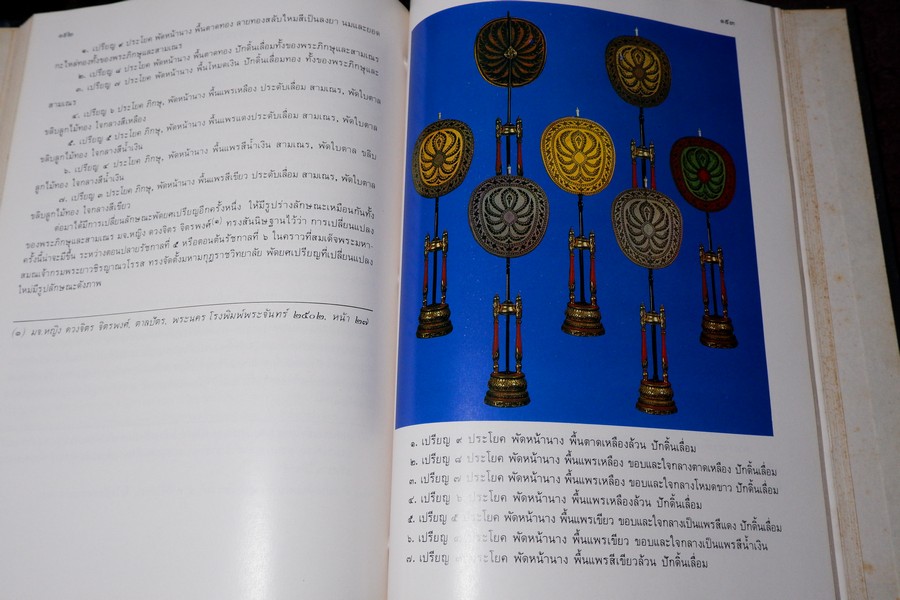 ๑๕๒
๑. เปรียญ ๙ ประโยค พัดหน้านาง พื้นตาดทอง ลายทองสลับไหมสีเป็นลงยา นมและยอด
กะไหล่ทองทั้งของพระภิกษุและสามเณร
๒. เปรียญ ๘ ประโยค พัดหน้านาง พื้นตาดทอง ปักดิ้นเลื่อมทั้งของพระภิกษุและสามเณร
๓. เปรียญ ๗ ประโยค พัดหน้านาง พื้นโหมดเงิน ปักดิ้นเลื่อมทอง ทั้งของพระภิกษุและ
สามเณร
๔. เปรียญ ๖ ประโยค ภิกษุ, พัดหน้านาง พื้นแพรเหลือง ประดับเลื่อม สามเณร, พัดใบตาล
ขลิบลูกไม้ทอง ใจกลางสีเหลือง
๕. เปรียญ ๕ ประโยค ภิกษุ, พัดหน้านาง พื้นแพรแดงประดับเลื่อม สามเณร, พัดใบตาล
ขลิบลูกไม้ทอง ใจกลางสีน้ำเงิน
๖. เปรียญ ๔ ประโยค ภิกษุ, พัดหน้านาง พื้นแพรสีน้ำเงิน สามเณร, พัดใบตาล ขลิบ
ลูกไม้ทอง ใจกลางสีน้ำเงิน
๗. เปรียญ ๓ ประโยค ภิกษุ, พัดหน้านาง พื้นแพรสีเขียว ประดับเลื่อม สามเณร, พัดใบตาล
ขลิบลูกไม้ทอง ใจกลางสีเขียว
ต่อมาได้มีการเปลี่ยนลักษณะพัดยศเปรียญอีกครั้งหนึ่ง ให้มีรูปร่างลักษณะเหมือนกันทั้ง
ของพระภิกษุและสามเณร มจ.หญิง ดวงจิตร จิตรพงศ์(๑) ทรงสันนิษฐานไว้ว่า การเปลี่ยนแปลง
ครั้งนี้น่าจะมีขึ้น ระหว่างตอนปลายรัชกาลที่ ๕ หรือตอนต้นรัชกาลที่ ๖ ในคราวที่สมเด็จพระมหา-
สมณเจ้ากรมพระยาวชิรญาณวโรรส ทรงจัดตั้งมหามกุฎราชวิทยาลัย พัดยศเปรียญที่เปลี่ยนแปลง
ใหม่มีรูปลักษณะดังภาพ
(๑) มจ.หญิง ดวงจิตร จิตรพงศ์, ตาลปัตร, พระนคร โรงพิมพ์พระจันทร์ ๒๕๐๒. หน้า ๒๗
๑๕๓
๑. เปรียญ ๙ ประโยค พัดหน้านาง พื้นตาดเหลืองล้วน ปักดิ้นเลื่อม
๒. เปรียญ ๘ ประโยค พัดหน้านาง พื้นแพรเหลือง ขอบและใจกลางตาดเหลือง ปักดิ้นเลื่อม
๓. เปรียญ ๗ ประโยค พัดหน้านาง พื้นแพรเหลือง ขอบและใจกลางโหมดขาว ปักดิ้นเลื่อม
๔. เปรียญ ๖ ประโยค พัดหน้านาง พื้นแพรเหลืองล้วน ปักดิ้นเลื่อม
๕. เปรียญ ๕ ประโยค พัดหน้านาง พื้นแพรเขียว ขอบและใจกลางเป็นแพรสีแดง ปักดิ้นเลื่อม
๖. เปรียญ ประโยค พัดหน้านาง พื้นแพรเขียว ขอบและใจกลางเป็นแพรสีน้ำเงิน
๗. เปรียญ ประโยค พัดหน้านาง พื้นแพรสีเขียวล้วน ปักดิ้นเลื่อม